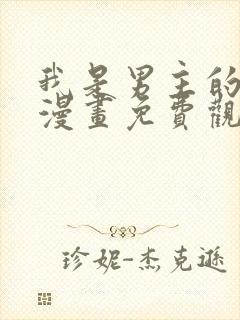 我是男主的
漫畫免費觀
珍妮-杰克遜